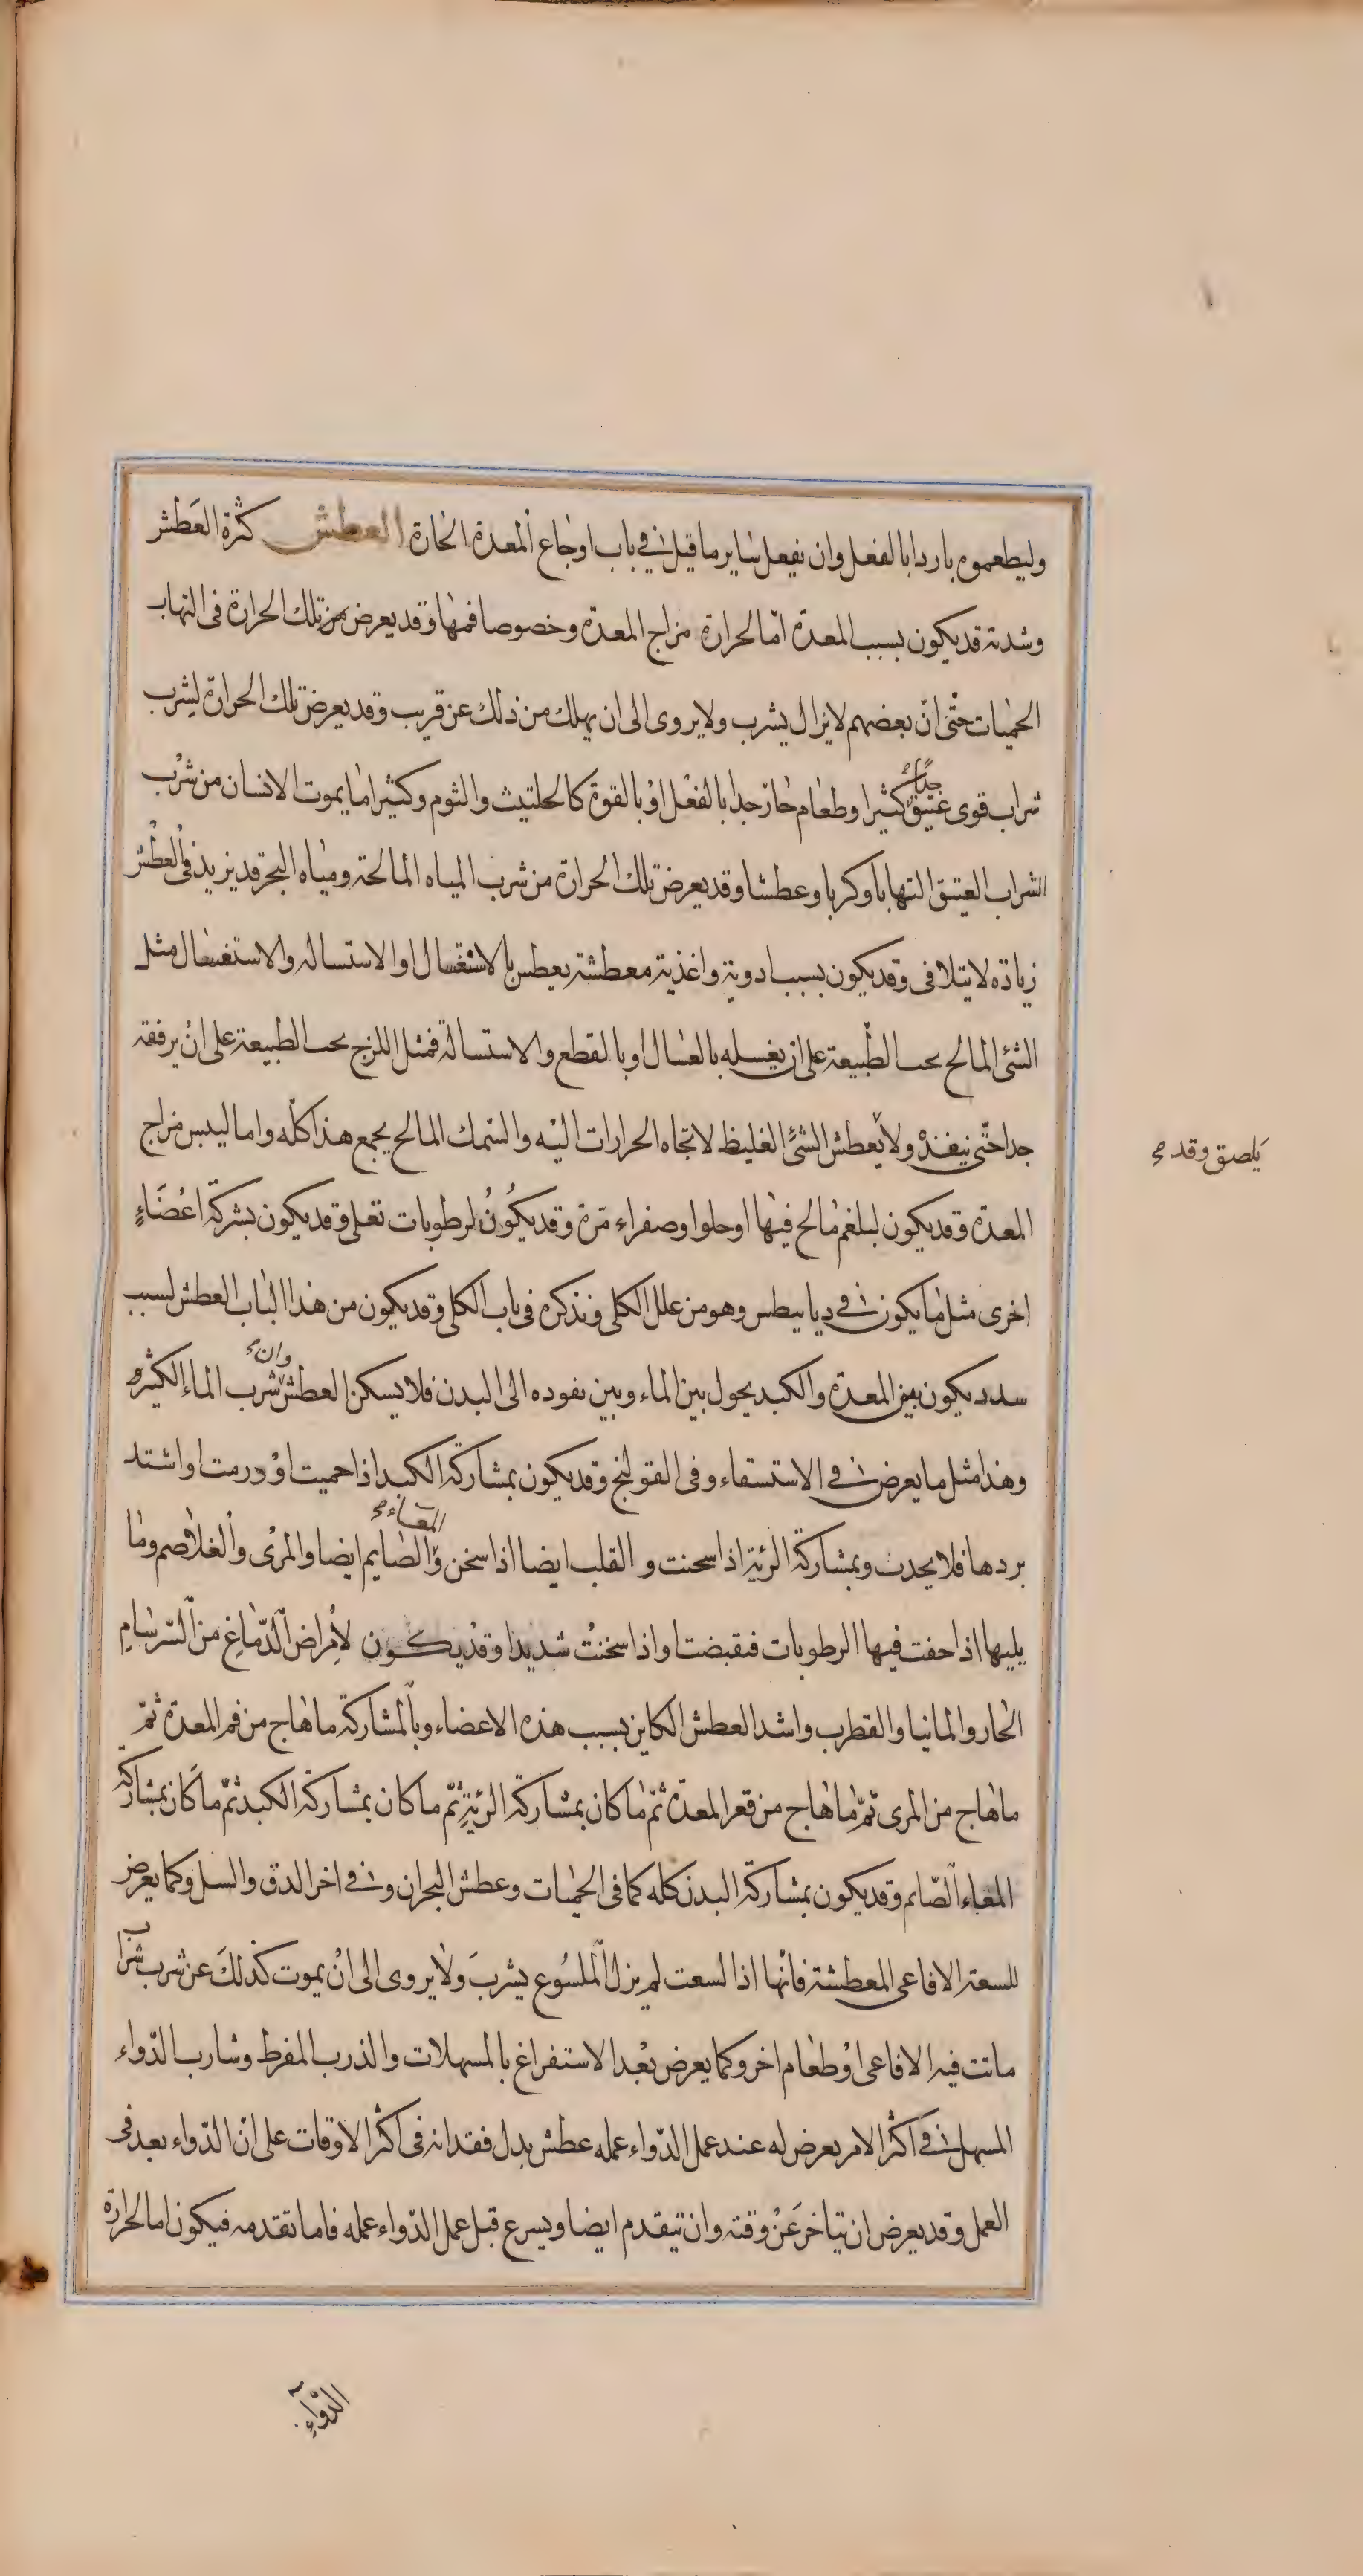 وليطعموه باردا بالفعل وان يفعل ساير ما قيل في باب اوجاع المعدة الحارة العطش كثرة العطش
وشدته قد يكون بسبب المعدة اما لحرارة مزاج المعدة وخصوصا فمها وقد يعرض من تلك الحرارة فى التهاب
الحميات حتى ان بعضهم لا يزال يشرب ولا يروى الى ان يهلك من ذلك عن قريب وقد يعرض تلك الحرارة لشرب
شراب قوى عتيق جدا كثيرا وطعام حار جدا بالفعل او بالقوة كالحلتيت والثوم وكثيرا ما يموت الانسان من شرب
الشراب العتيق التهابا وكربا وعطشا وقد يعرض تلك الحرارة من شرب المياه المالحة ومياه البحر قد يزيد فى العطش
زيادة لا يتلافى وقد يكون بسبب ادوية واغذية معطشة يعطش بالاستغسال او الاستسالة والاستغسال مثل
الشئ المالح يحب الطبيعة على ان يغسله بالغسال او بالقطع والاستسالة فمثل اللزج يحب الطبيعة على ان يرفقه
جدا حتى ينفذه ولا يعطش الشئ الغليظ لاتجاه الحرارات اليه والسمك المالح يجمع هذا كله واما ليبس مزاج
يلصق وقد
المعدة وقد يكون لبلغم مالح فيها او حلو او صفراء مرة وقد يكون لرطوبات تغلى وقد يكون بشركة اعضاء
اخرى مثل ما يكون في ديابيطس وهو من علل الكلى ونذكره فى باب الكلى وقد يكون من هذا الباب العطش لسبب
سدد يكون بين المعدة والكبد يحول بين الماء وبين نفوذه الى البدن فلا يسكن العطش وان شرب الماء الكثير
وهذا مثل ما يعرض في الاستسقاء وفى القولنج وقد يكون بمشاركة الكبد اذا حميت او ورمت او اشتد
بردها فلا يجذب وبمشاركة الرئة اذا سخنت والقلب ايضا اذا سخن والمعاء الصايم ايضا والمرى والغلاصم وما
يليها اذا جفت فيها الرطوبات فتقبضت او اذا سخنت شديدا وقد يكون لامراض الدماغ من السرسام
الحار والمانيا والقطرب واشد العطش الكاين بسبب هذه الاعضاء وبالمشاركة ما هاج من فم المعدة ثم
ما هاج من المرى ثم ما هاج من قعر المعدة ثم ما كان بمشاركة الرئة ثم ما كان بمشاركة الكبد ثم ما كان بمشاركة
المعاء الصايم وقد يكون بمشاركة البدن كله كما فى الحميات وعطش البحران وفي اخر الدق والسل وكما يعرض
للسعة الافاعى المعطشة فانها اذا لسعت لم يزل الملسوع يشرب ولا يروى الى ان يموت كذلك عن شرب شراب
ماتت فيه الافاعى او طعام اخر وكما يعرض بعد الاستفراغ بالمسهلات والذرب المفرط وشارب الدواء
المسهل في اكثر الامر يعرض له عند عمل الدواء عمله عطش يدل فقدانه فى اكثر الاوقات على ان الدواء بعد فى
العمل وقد يعرض ان يتاخر عن وقته وان يتقدم ايضا ويسرع قبل عمل الدواء عمله فاما تقدمه فيكون اما لحرارة
الدواء